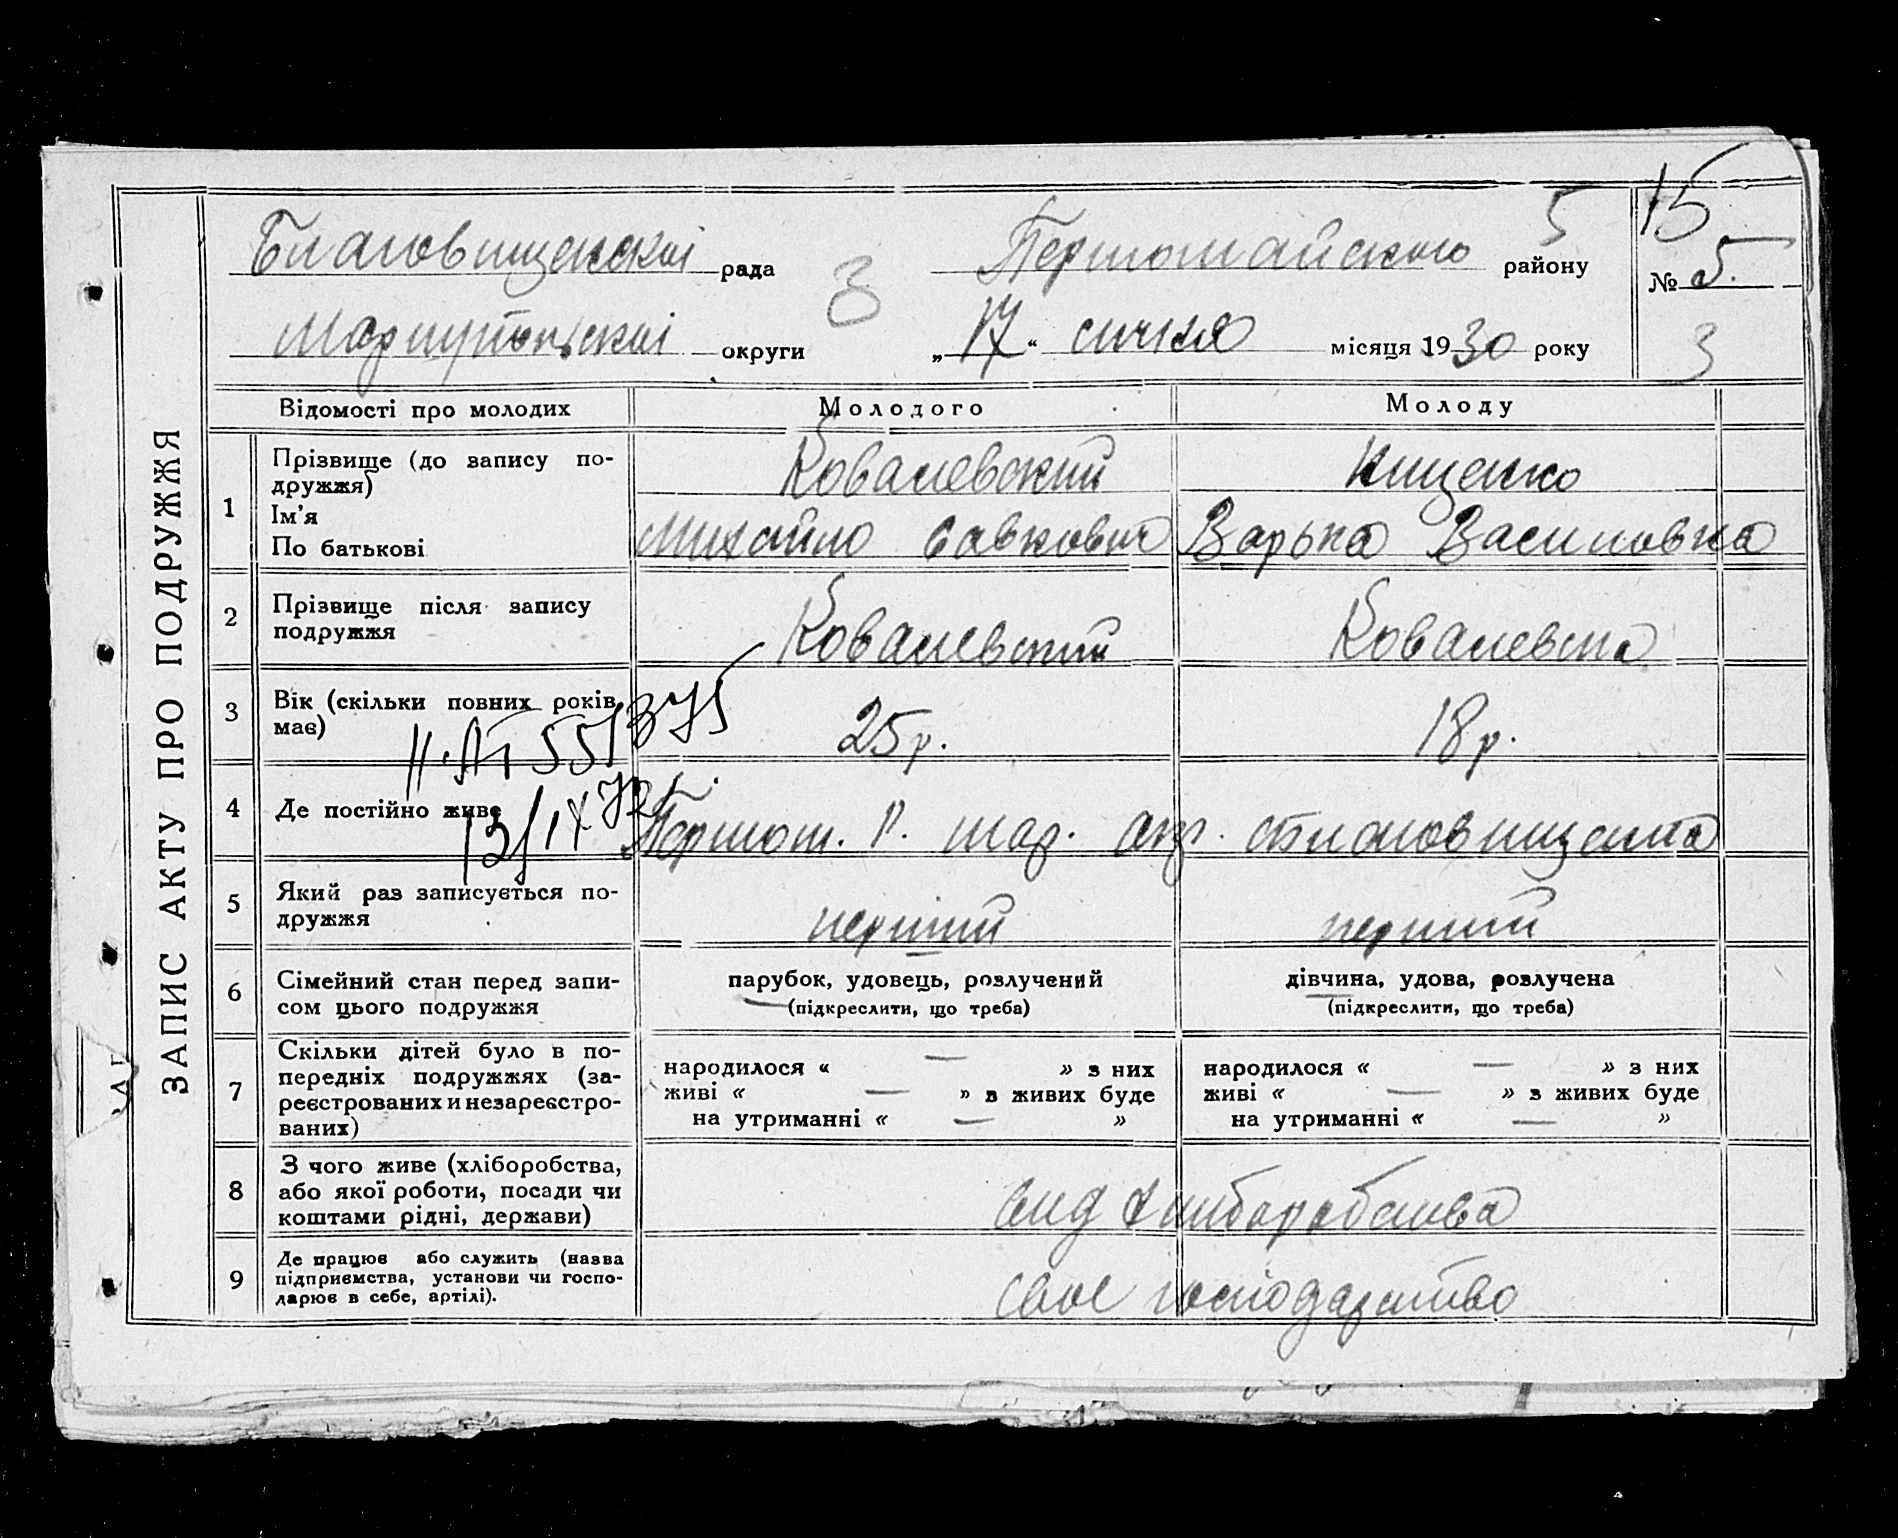 ЗАПИС АКТУ ПРО ПОДРУЖЖЯ
15
Благовищенскої рада
3
Першотайського району
5
№ 5.
Маріупольскої округи
„17“ січня місяця 1930 року
3
Відомості про молодих
Молодого
Молоду
1
Прізвище (до запису по-
дружжя)
Ім'я
По батькові
Ковалевский
Михайло Савкович
Ищенко
Варька Василовна
2
Прізвище після запису
подружжя
Ковалевский
Ковалевска
3
Вік (скільки повних років
має)
25 р.
18 р.
551375
13/IX 72
4
Де постійно живе
Першот. р. мар. окр. Благовищенка
5
Який раз записується по-
дружжя
перший
перший
6
Сімейний стан перед запи-
сом цього подружжя
парубок, удовець, розлучений
(підкреслити, що треба)
дівчина, удова, розлучена
(підкреслити, що треба)
7
Скільки дітей було в по-
передніх подружжях (за-
реєстрованих и незареєстро-
ваних)
народилося « — » з них
живі « — » з живих буде
на утриманні « — »
народилося « — » з них
живі « — » з живих буде
на утриманні « — »
8
З чого живе (хліборобства,
або якої роботи, посади чи
коштами рідні, держави)
вид хлиборобства
9
Де працює або служить (назва
підприємства, установи чи госпо-
дарює в себе, артілі).
своє господарство